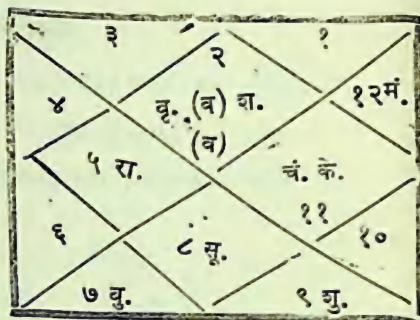 ३ २ १
४ वृ. (व) श. १२ मं.
(व)
५ रा. चं. के.
११
६ ८ सू. १०
७ वु. ९ शु.